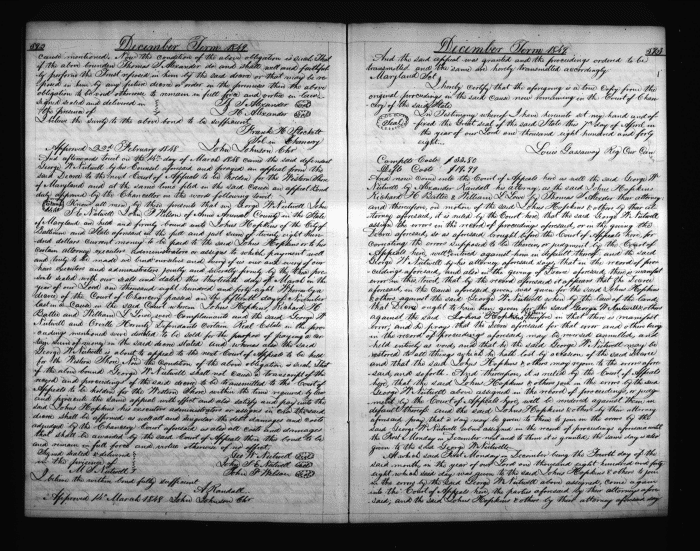 582
December Term 1849
cause mentioned. Now the condition of the above obligation is such That
if the above bounden Thomas S. Alexander do and shall well and faithfully
perform the Trust reposed in him by the said decree or that may be re-
posed in him by any future decree or order in the premises then the above
obligation to be void otherwise to remain in full force and virtue in law.
Signed sealed and delivered in
the presence of
T. S. Alexander Seal
Alexander Seal
I believe the surety to the above bond to be sufficient
Frank H. Stockett
Sol. in Chancery
Approved 23d February 1848 John Johnson Chr
And afterwards to wit on the 14th day of March 1848 came the said defendant
George W. Nutwell by his Counsel aforesaid and prayed an appeal from the
said Decree to the next Court of Appeals to be held for the Western Shore
of Maryland and at the same time filed in the said cause an appeal Bond
duly approved by the Chancellor in the word following to wit
Know all men by these presents that we George W. Nutwell John
S. Nutwell John P. Wilson of Anne Arundel County in the State
of Maryland are held and firmly bound unto Johns Hopkins of the City of
Baltimore and State aforesaid in the full and just sum of twenty eight hun-
dred dollars current money to be paid to the said Johns Hopkins or to his
certain attorney executors administrators or assigns to which payment well
and truly to be made we bind ourselves and every of us our and every of our
heirs executors and administrators jointly and severally firmly by these pre-
sents sealed with our seals and dated this thirteenth day of March in the
year of our Lord one thousand eight hundred and forty eight Whereas by a
decree of the Court of Chancery passed on the fifteenth day of November
last in a Cause in the said Court wherein Johns Hopkins Richard H.
Battee and William Love were Complainants and the said George W.
Nutwell and Defendants certain Real Estate in the pro-
ceedings mentioned was decreed to be sold for the purpose of paying a the
sum of money in the said decree stated and whereas also the said
George W. Nutwell is about to appeal to the next Court of Appeals to be held
for the Western Shore. Now the Condition of the above obligation is such that
if the above bound George W. Nutwell shall and cause a transcript of the
record and proceedings of the said decree to be transmitted to the Court of
Appeals to be holden for the Western Shore within the time required by law
and prosecute the same appeal with effect and also satisfy and pay unto the
said Johns Hopkins his executors administrators or assigns in case the said
decree shall be affirmed as well as and singular the debt damages and costs
adjudged by the Chancery Court aforesaid as also all costs and damages
that shall be awarded by the said Court of Appeals then this bond to be
and remain in full force and virtue otherwise of no effect.
Signed sealed & delivered
in the presence of
M. Nutwell
Geo W. Nutwell Seal
John S. Nutwell Seal
John P. Wilson Seal
I believe the within bond fully sufficient
A. Randall
Approved 14 March 1848 John Johnson Chr
December Term 1849
583
And the said appeal was granted and the proceedings ordered to be
transmitted and the same are hereby transmitted accordingly
Maryland Sct.
I hereby certify that the aforegoing is a true Copy from the
original proceedings in the said cause now remaining in the Court of Chan-
cery of the said State
In Testimony whereof I have hereunto set my hand and af-
fixed the Great Seal of the said State this 7th day of April in
the year of our Lord one thousand eight hundred and forty
eight.
Louis Gassaway Reg Cur Can
Complts Costs $
Defts Costs $
And now come into the Court of Appeals here as well the said George W.
Nutwell by Alexander Randall his attorney, as the said Johns Hopkins
Richard H. Battee & William Love by Thomas S. Alexander their attorney;
and thereupon, on motion of the said Johns Hopkins & others by their at-
torney aforesaid, it is ruled by the Court here that the said George W. Nutwell
assign the error in the record of proceedings aforesaid, or in the giving of the
Decree aforesaid, or as aforesaid brought into the Court of Appeals here, for
correcting the errors supposed to be therein, or judgment by the Court of
Appeals here, will be entered against him in default thereof; and the said
George W. Nutwell by his attorney aforesaid says, that in the record of pro-
ceedings aforesaid, and also in the giving of Decree aforesaid, there is manifest
error in this, to wit, that by the record aforesaid it appears that the Decree
aforesaid, in the cause aforesaid given, was given for the said Johns Hopkins
& others against the said George W. Nutwell when by the law of the land,
that Decree ought to have been given for the said George W. Nutwell
against the said Johns Hopkins & others, therefore in that there is manifest
error; and he prays that the Decree aforesaid for that error and others being
in the record of proceedings aforesaid, may be revised annulled, and
held entirely as void; and that he the said George W. Nutwell may be
restored to all things which he hath lost by occasion of the said Decree
and that the said Johns Hopkins & others may rejoin to the error afore-
said, and so forth. And thereupon, it is ruled by the Court of Appeals
here, that the said Johns Hopkins & others rejoin to the error by the said
George W. Nutwell above assigned in the record of proceedings, or judg-
ment by the Court of Appeals here, will be entered against them in
default thereof; and the said Johns Hopkins & others by their attorney
aforesaid, pray, that a day may be given to them to rejoin to the error by the
said George W. Nutwell above assigned in the record of proceedings aforesaid until
the first Monday in December next and to them it is granted, the same day is also
given to the said George W. Nutwell.
At which said First Monday in December being the Fourth day of the
said month, in the year of our Lord one thousand eight hundred and forty
eight which said day was given to the said Johns Hopkins & others to join
to the error by the said George W. Nutwell above assigned, come again
into the Court of Appeals here, the parties aforesaid by their attorneys afore-
said, and the said Johns Hopkins & others by their attorney aforesaid say